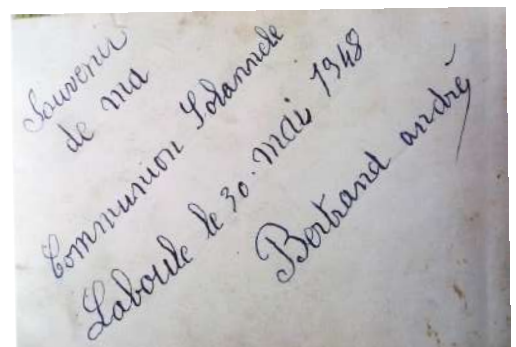 Souvenir
de ma
Communion Solannele
Laboule le 30. mai 1948
Bertrand andré